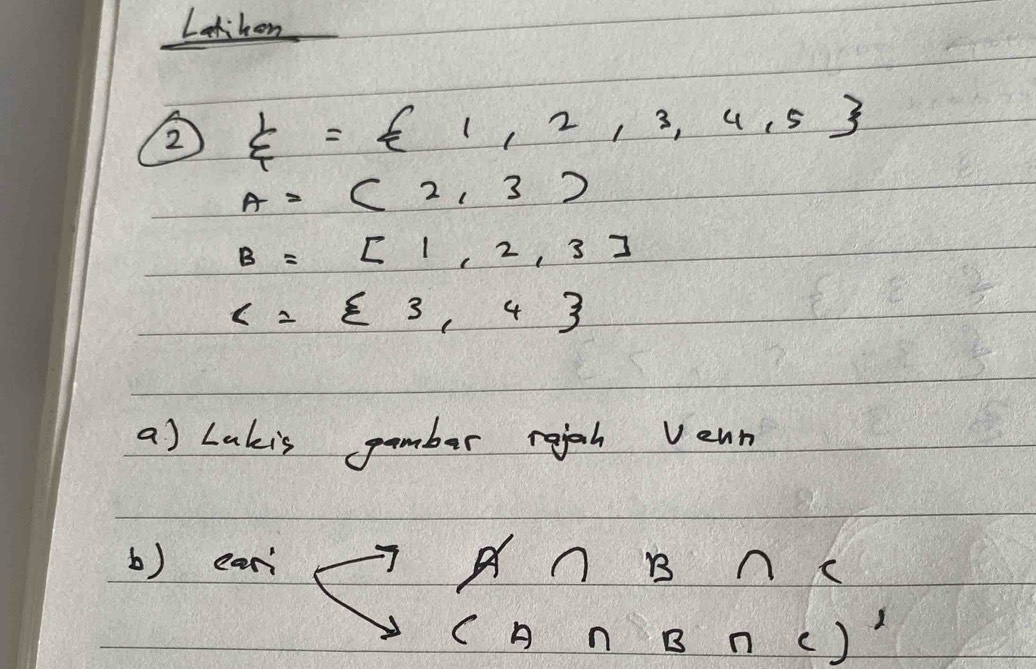 Latihan
② ξ = { 1, 2, 3, 4, 5 }
A = ( 2, 3 )
B = [ 1, 2, 3 ]
C = { 3, 4 }
a) Lukis gambar rajah Venn
b) cari → A ∩ B ∩ C
→ ( A ∩ B ∩ C )'